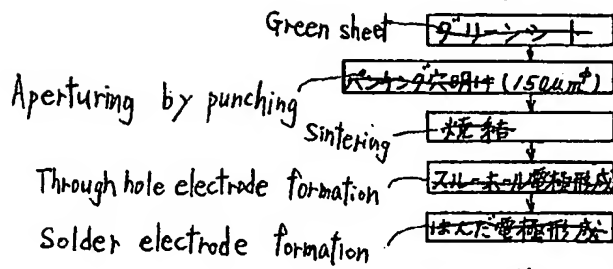 Green sheet グリーンシート
Aperturing by punching パンチング穴明け(150μmφ)
Sintering 焼結
Through hole electrode formation スルーホール電極形成
Solder electrode formation はんだ電極形成